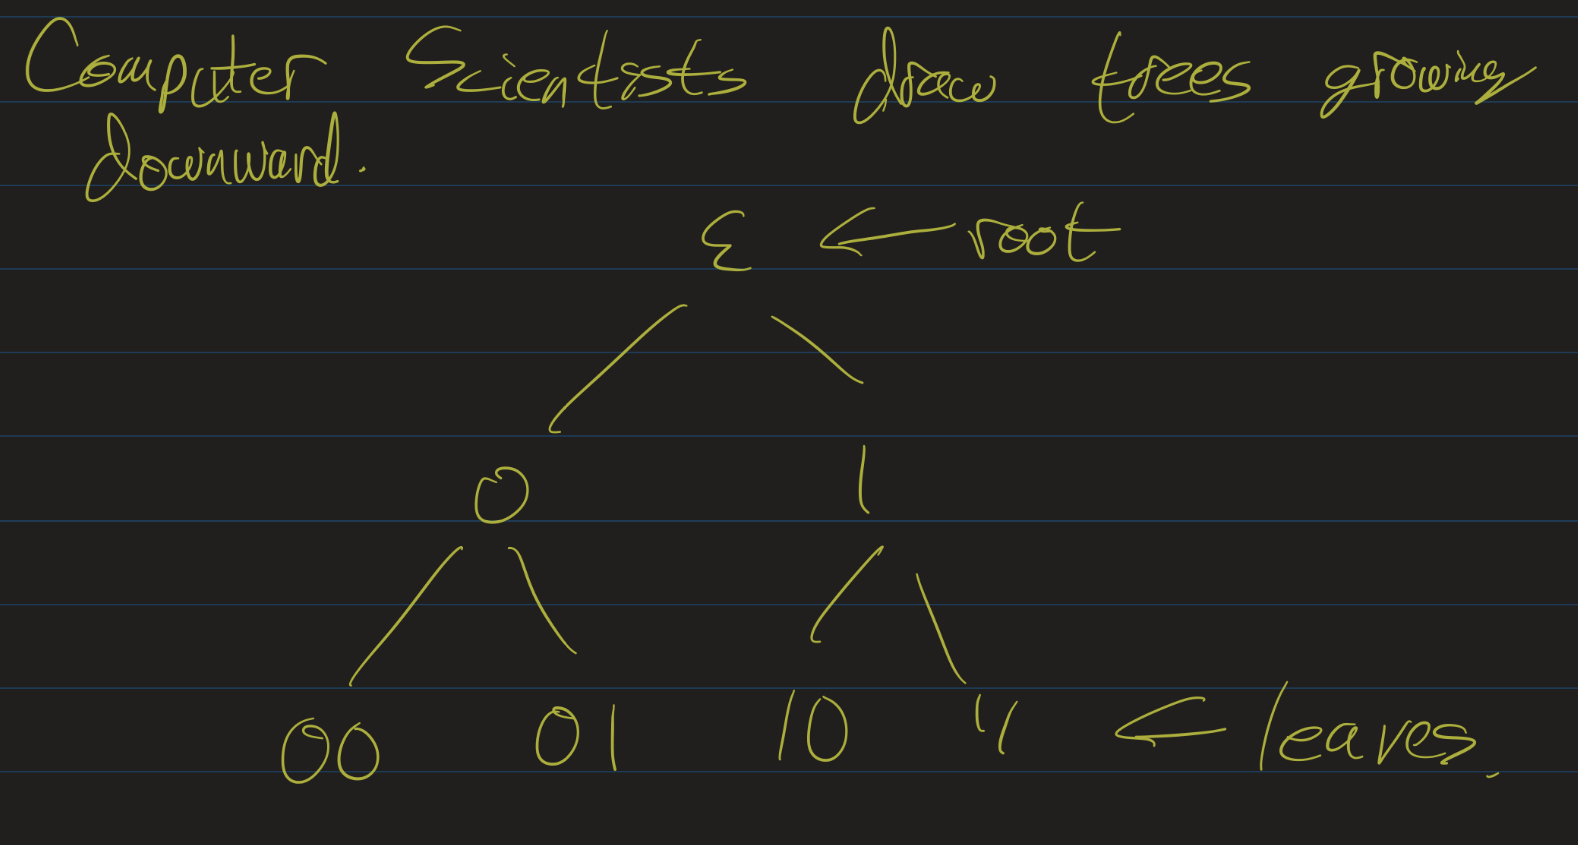 Computer Scientists draw trees growing
downward.
ε ← root
0 1
00 01 10 11 ← leaves.